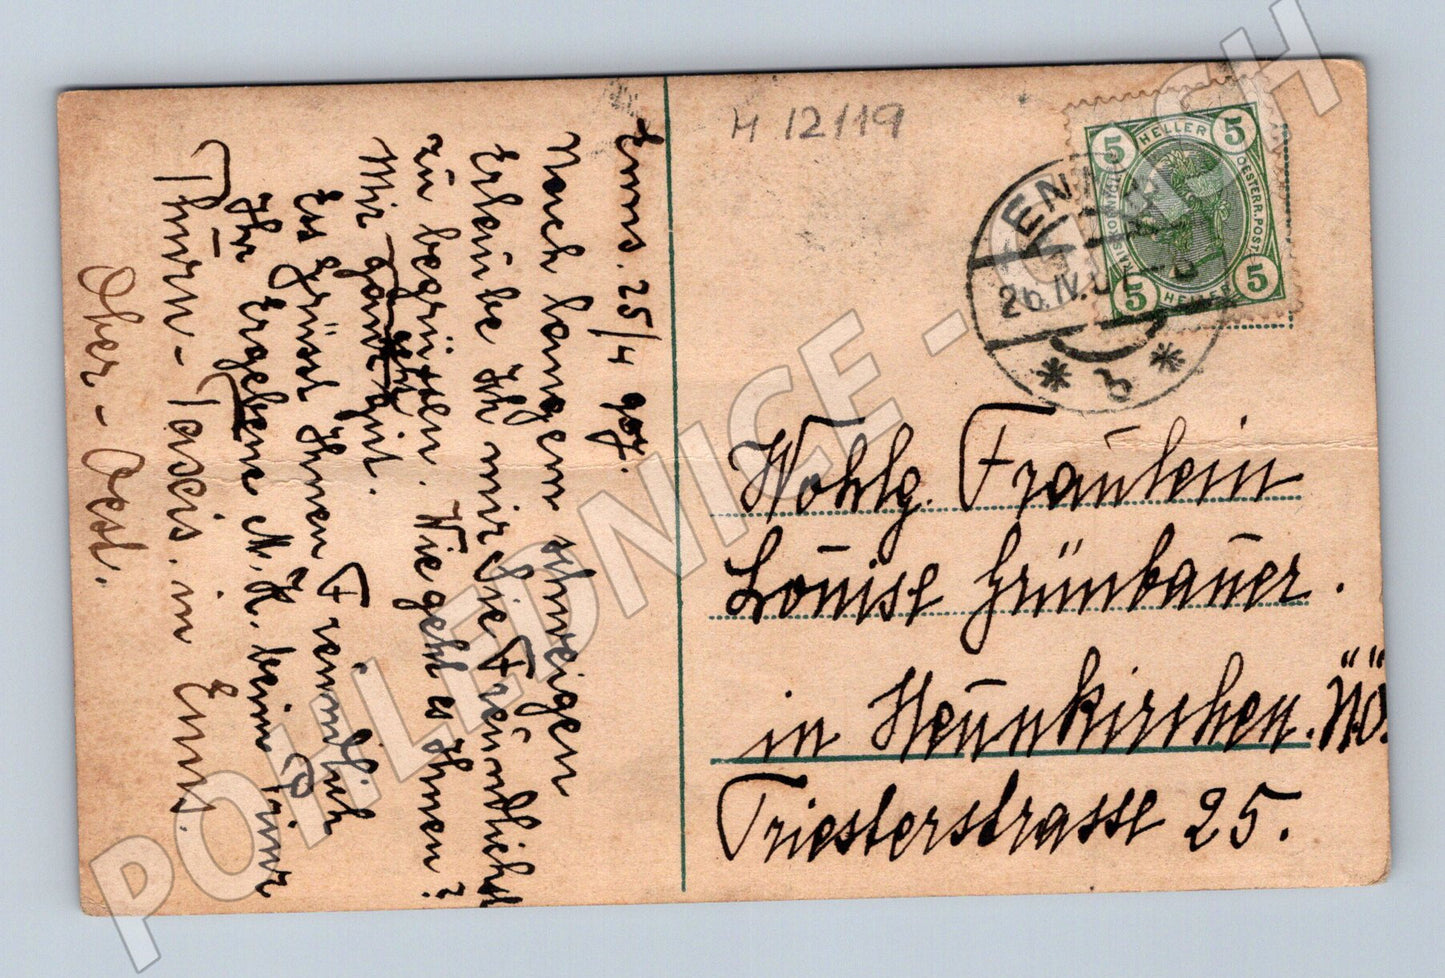 Enns. 25/4 907.
Nach langem schweigen
Erlaube Ich mir Sie Freundlichst
zu begrüßen. Wie geht es Ihnen?
Mir geht sehr gut.
Es grüsst Ihnen Freundlich
Ihr Ergebene
Thurn-Taxis. in Enns.
Ober-Oest.
H 12/19
5 HELLER 5
OESTERR. POST.
KAIS. KÖNIGL.
5 HELLER 5
ENNS
26.IV.07
* b *
Wohlg. Fräulein
Louise Grünbauer.
in Neunkirchen. N.Ö.
Triesterstrasse 25.
POHLEDNICE - CZECH